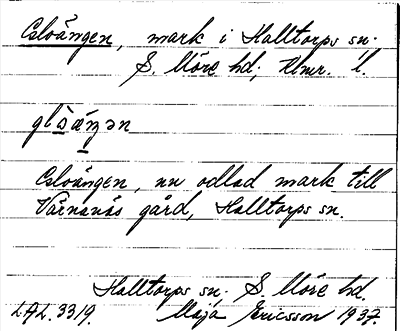 Osloängen, mark i Halltorps sn.
S. Möre hd; Klmr. l.
Osloängen, nu odlad mark till
Värnanäs gård, Halltorps sn.
Halltorps sn. S. Möre hd.
L.A.L. 3319. Maja Ericsson 1937